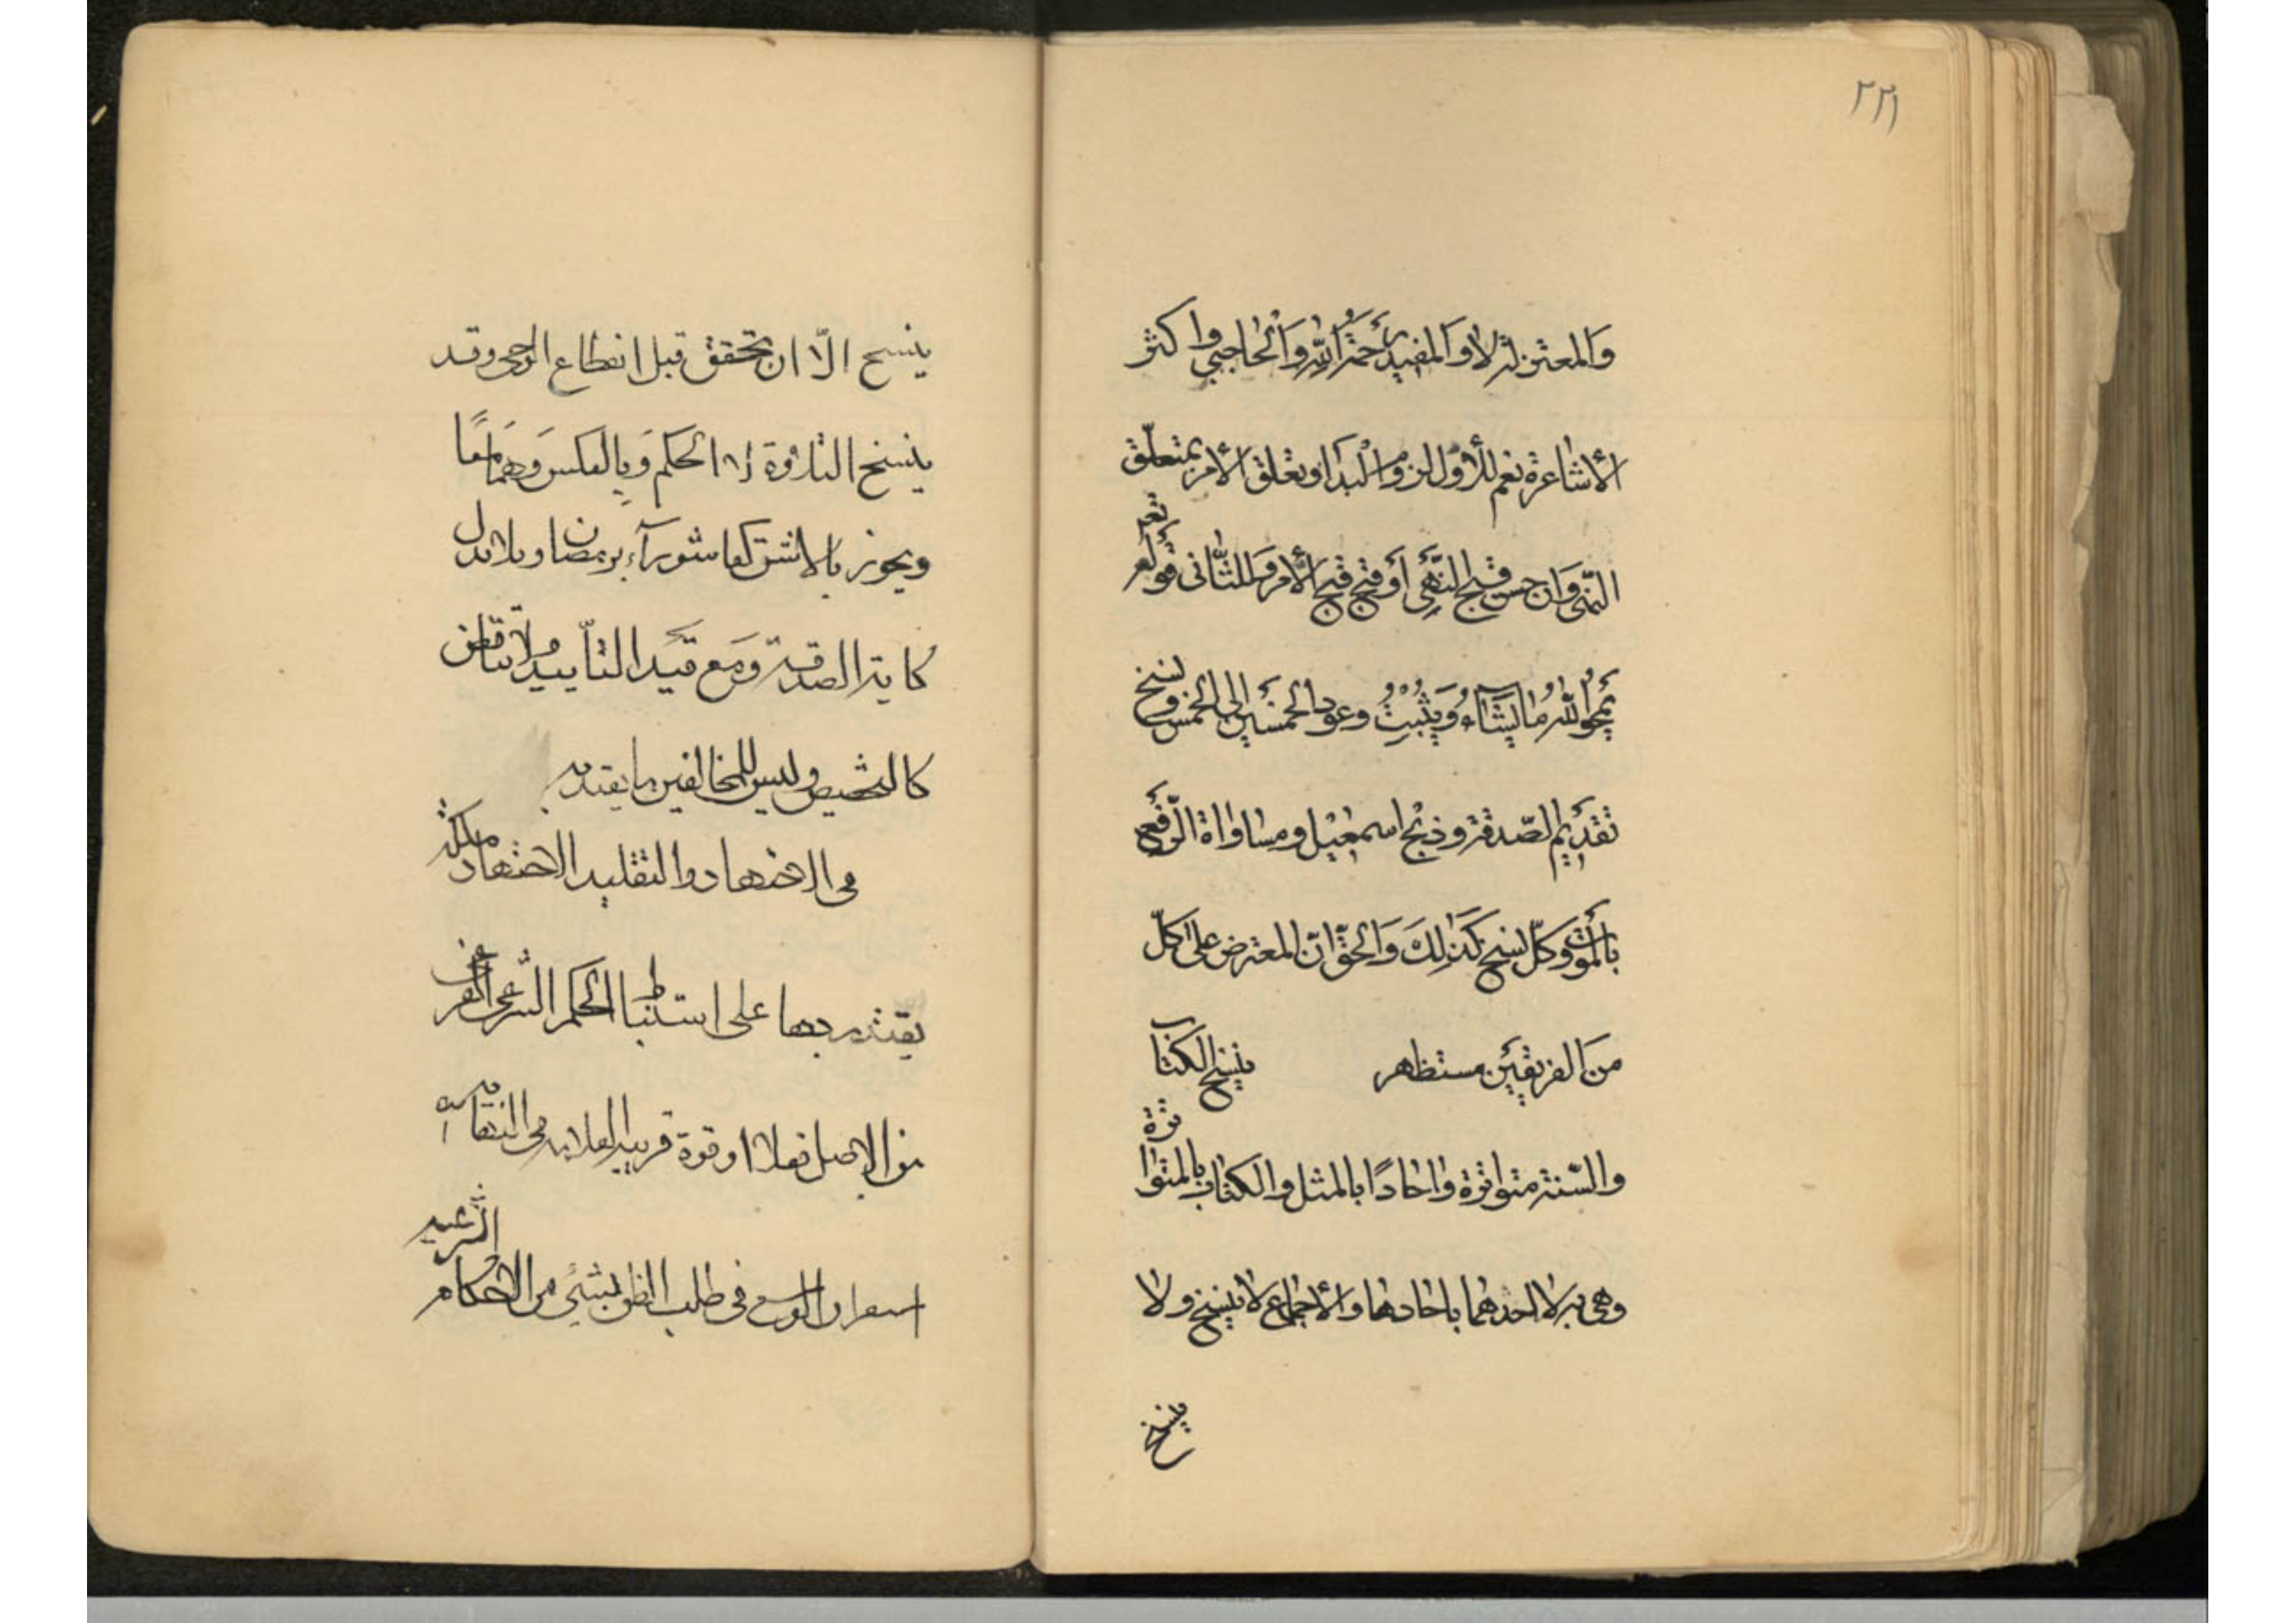 ٢٢١
وَالمعتزلة لا وَالمفيد رَحمَهُ اللّٰه وَالْحاجبي واكثر
الأشاعرة نعم للأوّل لزوم الْبَدا وتعلق الأمر بمتعلّق
النّهى وَان حسن قبح النّهْي أو قبح قبح الأمر وَللثّانى قوله تعم
يَمْحُوا اللّٰه مٰا يَشٰاءُ وَيُثْبِتُ وعود الخمسَين إلى الخمس وَنسخ
تقدَيم الصّدقة وذبْح اسمعٰيل ومساواة الرّفع
بالمَوت وكلّ نسخ كَذٰلِكَ وَالحقّ انّ المعترض على كلّ
منَ الفريقَين مستظهر ينسخ الكتاب
والسّنة متواترة وٰاحٰادًا بالمثل والكتاب بالمتواترة
وهى به لا احدهما باحادها والأجماع لا ينسخ ولا
ينسخ
ينسخ الّا ان تحقق قبل انقطاع الوحى وقد
ينسخ التلاوة لا الحكم وَبِالعكسَ وَهمَا معًا
ويجوز بالاشق كعاشورآء برمضان وبلا بدل
كاية الصدقة وَمَع قيَد التأبيد ولا تناقض
كالتخصيص وليس للمخالفين ما يعتد به
فى الاجتهاد والتقليد الاجتهاد ملكة
يقتدر بها على استنباط الحكم الشّرعى الفرعى
من الاصل فعلا او قوة قريبة العلامه فى النهاية
استفراغ الوسع فى طلب الظن بشىء من الاحكام الشرعيه